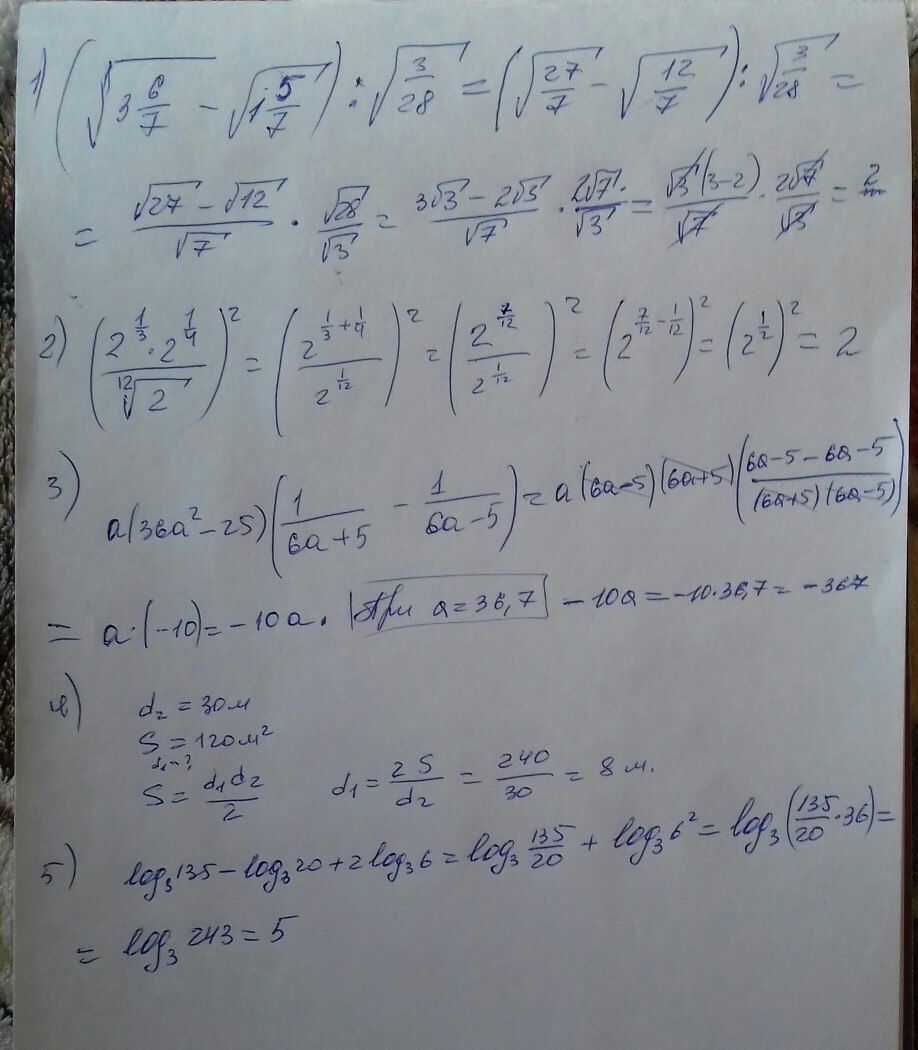 1) (√(3 6/7) − √(1 5/7)) : √(3/28) = (√(27/7) − √(12/7)) : √(3/28) =
= (√27 − √12)/√7 · √28/√3 = (3√3 − 2√3)/√7 · 2√7/√3 = √3(3−2)/√7 · 2√7/√3 = 2
2) ((2^(1/3) · 2^(1/4))/¹²√2)² = (2^(1/3+1/4)/2^(1/12))² = (2^(7/12)/2^(1/12))² = (2^(7/12−1/12))² = (2^(1/2))² = 2
3) a(36a² − 25)(1/(6a+5) − 1/(6a−5)) = a(6a−5)(6a+5)((6a−5−6a−5)/((6a+5)(6a−5)))
= a·(−10) = −10a. При a = 36,7 −10a = −10·36,7 = −367
4) d₂ = 30м
S = 120м²
d₁ − ?
S = d₁d₂/2 d₁ = 2S/d₂ = 240/30 = 8 м.
5) log₃135 − log₃20 + 2log₃6 = log₃ 135/20 + log₃6² = log₃(135/20 · 36) =
= log₃ 243 = 5